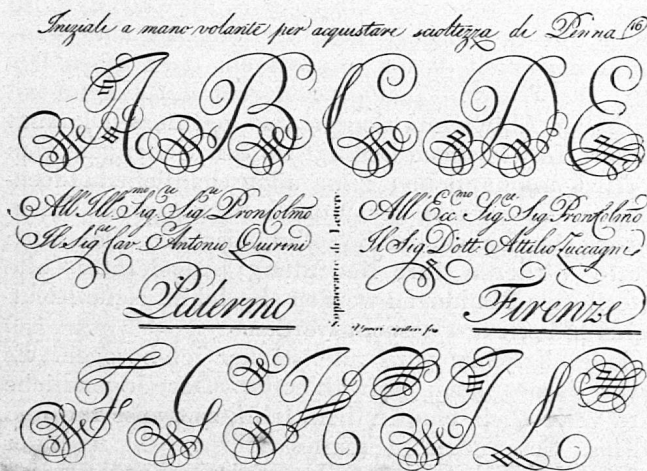 Iniziale a mano volante per acquistare scioltezza di Pinna 16
A B C D E
All' Ill.mo Sig.re Sig.re Pron Colmo
Il Sig.re Cav. Antonio Quirini
Palermo
Sopraccarte di Lettere
All' Ecc.mo Sig.re Sig. Pron Colmo
Il Sig Dott. Attilio Zuccagni
Firenze
F G H I L